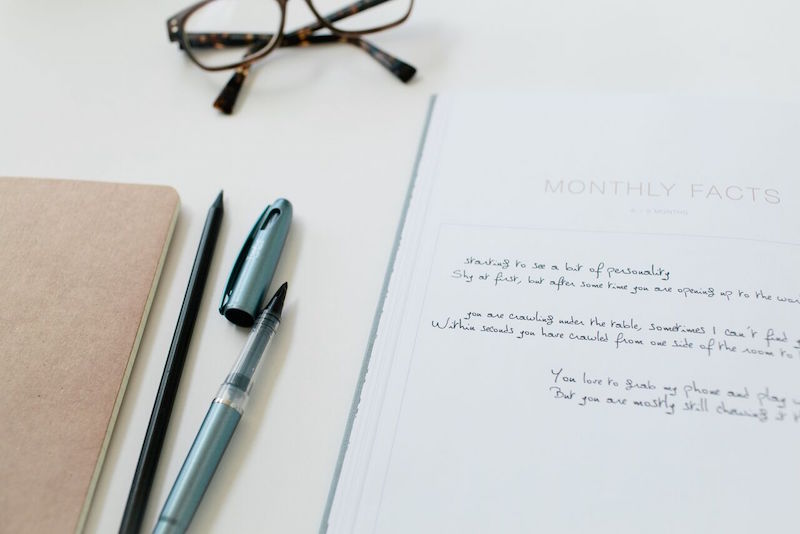 MONTHLY FACTS
MONTHS
starting to see a bit of personality
Shy at first, but after some time you are opening up to the
you are crawling under the table, sometimes I can't find
Within seconds you have crawled from one side of the room to
You love to grab my phone and play
But you are mostly still chewing it